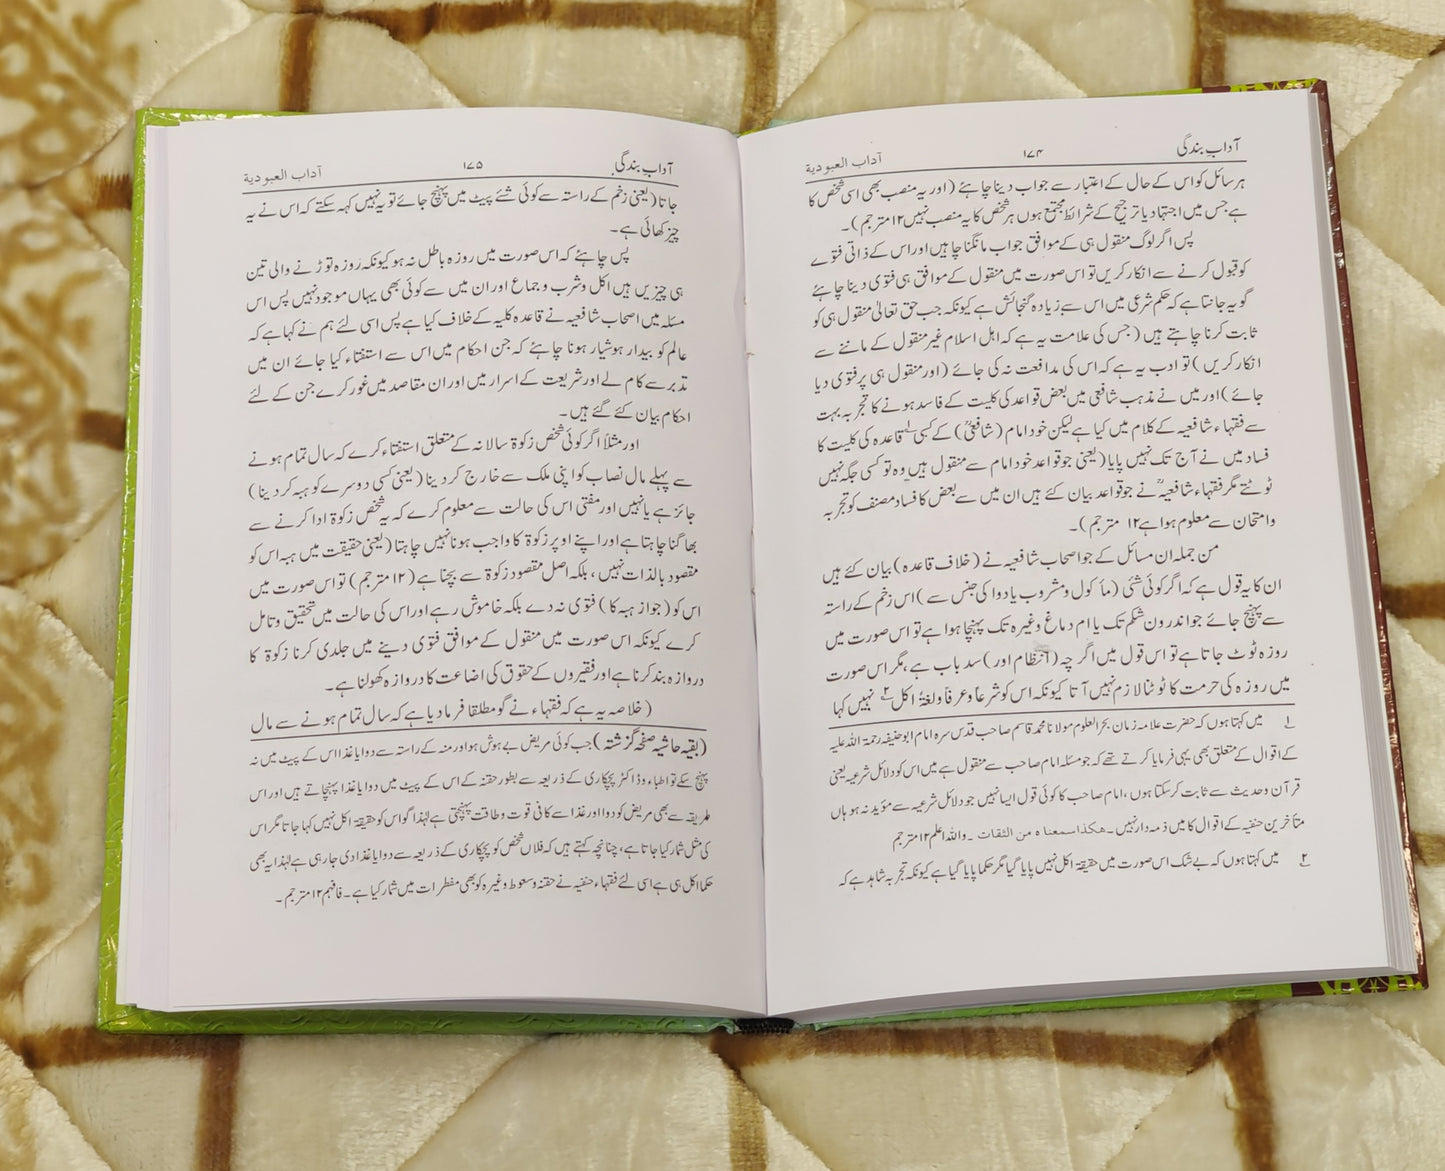 آدابِ بندگی ۱۷۴ آداب العبودیة
ہر سائل کو اس کے حال کے اعتبار سے جواب دینا چاہئے (اور یہ منصب بھی اسی شخص کا
ہے جس میں اجتہاد یا ترجیح کے شرائط مجتمع ہوں ہر شخص کا یہ منصب نہیں ۱۲ مترجم)۔
پس اگر لوگ منقول ہی کے موافق جواب مانگنا چاہیں اور اس کے ذاتی فتوے
کو قبول کرنے سے انکار کریں تو اس صورت میں منقول کے موافق ہی فتویٰ دینا چاہئے
گو یہ جانتا ہے کہ حکم شرعی میں اس سے زیادہ گنجائش ہے کیونکہ جب حق تعالیٰ منقول ہی کو
ثابت کرنا چاہتے ہیں (جس کی علامت یہ ہے کہ اہل اسلام غیر منقول کے ماننے سے
انکار کریں) تو ادب یہ ہے کہ اس کی مدافعت نہ کی جائے (اور منقول ہی پر فتویٰ دیا
جائے) اور میں نے مذہب شافعی میں بعض قواعد کی کلیت کے فاسد ہونے کا تجربہ بہت
سے فقہاء شافعیہ کے کلام میں کیا ہے لیکن خود امام (شافعیؒ) کے کسی۱؎ قاعدہ کی کلیت کا
فساد میں نے آج تک نہیں پایا (یعنی جو قواعد خود امام سے منقول ہیں وہ تو کسی جگہ نہیں
ٹوٹتے مگر فقہاء شافعیہؒ نے جو قواعد بیان کئے ہیں ان میں سے بعض کا فساد مصنف کو تجربہ
وامتحان سے معلوم ہوا ہے ۱۲ مترجم)۔
من جملہ ان مسائل کے جو اصحاب شافعیہ نے (خلاف قاعدہ) بیان کئے ہیں
ان کا یہ قول ہے کہ اگر کوئی شئی (ماکول ومشروب یا دوا کی جنس سے) اس زخم کے راستہ
سے پہنچ جائے جو اندرون شکم تک یا ام دماغ وغیرہ تک پہنچا ہوا ہے تو اس صورت میں
روزہ ٹوٹ جاتا ہے تو اس قول میں اگر چہ (انتظام اور) سد باب ہے، مگر اس صورت
میں روزہ کی حرمت کا ٹوٹنا لازم نہیں آتا کیونکہ اس کو شرعا وعرفا ولغۃً اکل۲؎ نہیں کہا
۱؎ میں کہتا ہوں کہ حضرت علامہ زمان بحر العلوم مولانا محمد قاسم صاحب قدس سرہ امام ابوحنیفہ رحمۃ اللہ علیہ
کے اقوال کے متعلق بھی یہی فرمایا کرتے تھے کہ جو مسئلہ امام صاحب سے منقول ہے میں اس کو دلائل شرعیہ یعنی
قرآن وحدیث سے ثابت کر سکتا ہوں، امام صاحب کا کوئی قول ایسا نہیں جو دلائل شرعیہ سے مؤید نہ ہو ہاں
متأخرین حنفیہ کے اقوال کا میں ذمہ دار نہیں۔ هكذا سمعناه من الثقات ۔ واللہ اعلم ۱۲ مترجم
۲؎ میں کہتا ہوں کہ بے شک اس صورت میں حقیقۃ اکل نہیں پایا گیا مگر حکما پایا گیا ہے کیونکہ تجربہ شاہد ہے کہ
آدابِ بندگی ۱۷۵ آداب العبودیة
جاتا (یعنی زخم کے راستہ سے کوئی شئے پیٹ میں پہنچ جائے تو یہ نہیں کہہ سکتے کہ اس نے یہ
چیز کھائی ہے۔
پس چاہئے کہ اس صورت میں روزہ باطل نہ ہو کیونکہ روزہ توڑنے والی تین
ہی چیزیں ہیں اکل وشرب و جماع اور ان میں سے کوئی بھی یہاں موجود نہیں پس اس
مسئلہ میں اصحاب شافعیہ نے قاعدہ کلیہ کے خلاف کیا ہے پس اسی لئے ہم نے کہا ہے کہ
عالم کو بیدار ہوشیار ہونا چاہئے کہ جن احکام میں اس سے استفتاء کیا جائے ان میں
تدبر سے کام لے اور شریعت کے اسرار میں اور ان مقاصد میں غور کرے جن کے لئے
احکام بیان کئے گئے ہیں۔
اور مثلاً اگر کوئی شخص زکوۃ سالانہ کے متعلق استفتاء کرے کہ سال تمام ہونے
سے پہلے مال نصاب کو اپنی ملک سے خارج کر دینا (یعنی کسی دوسرے کو ہبہ کر دینا)
جائز ہے یا نہیں اور مفتی اس کی حالت سے معلوم کرے کہ یہ شخص زکوۃ ادا کرنے سے
بھاگنا چاہتا ہے اور اپنے اوپر زکوۃ کا واجب ہونا نہیں چاہتا (یعنی حقیقت میں ہبہ اس کو
مقصود بالذات نہیں، بلکہ اصل مقصود زکوۃ سے بچنا ہے (۱۲ مترجم) تو اس صورت میں
اس کو (جواز ہبہ کا) فتویٰ نہ دے بلکہ خاموش رہے اور اس کی حالت میں تحقیق وتامل
کرے کیونکہ اس صورت میں منقول کے موافق فتویٰ دینے میں جلدی کرنا زکوۃ کا
دروازہ بند کرنا ہے اور فقیروں کے حقوق کی اضاعت کا دروازہ کھولنا ہے۔
(خلاصہ یہ ہے کہ فقہاء نے گو مطلقا فرما دیا ہے کہ سال تمام ہونے سے مال
(بقیہ حاشیہ صفحہ گزشتہ) جب کوئی مریض بے ہوش ہو اور منہ کے راستہ سے دوا یا غذا اس کے پیٹ میں نہ
پہنچ سکے تو اطباء وڈاکٹر پچکاری کے ذریعہ سے بطور حقنہ کے اس کے پیٹ میں دوا یا غذا پہنچاتے ہیں اور اس
طریقہ سے بھی مریض کو دوا اور غذا سے کافی قوت و طاقت پہنچتی ہے لہٰذا گو اس کو حقیقۃ اکل نہیں کہا جاتا مگر اس
کی مثل شمار کیا جاتا ہے، چنانچہ کہتے ہیں کہ فلاں شخص کو پچکاری کے ذریعہ سے دوا یا غذا دی جا رہی ہے لہٰذا یہ بھی
حکما اکل ہی ہے اسی لئے فقہاء حنفیہ نے حقنہ وسعوط وغیرہ کو بھی مفطرات میں شمار کیا ہے۔ فافہم ۱۲ مترجم۔